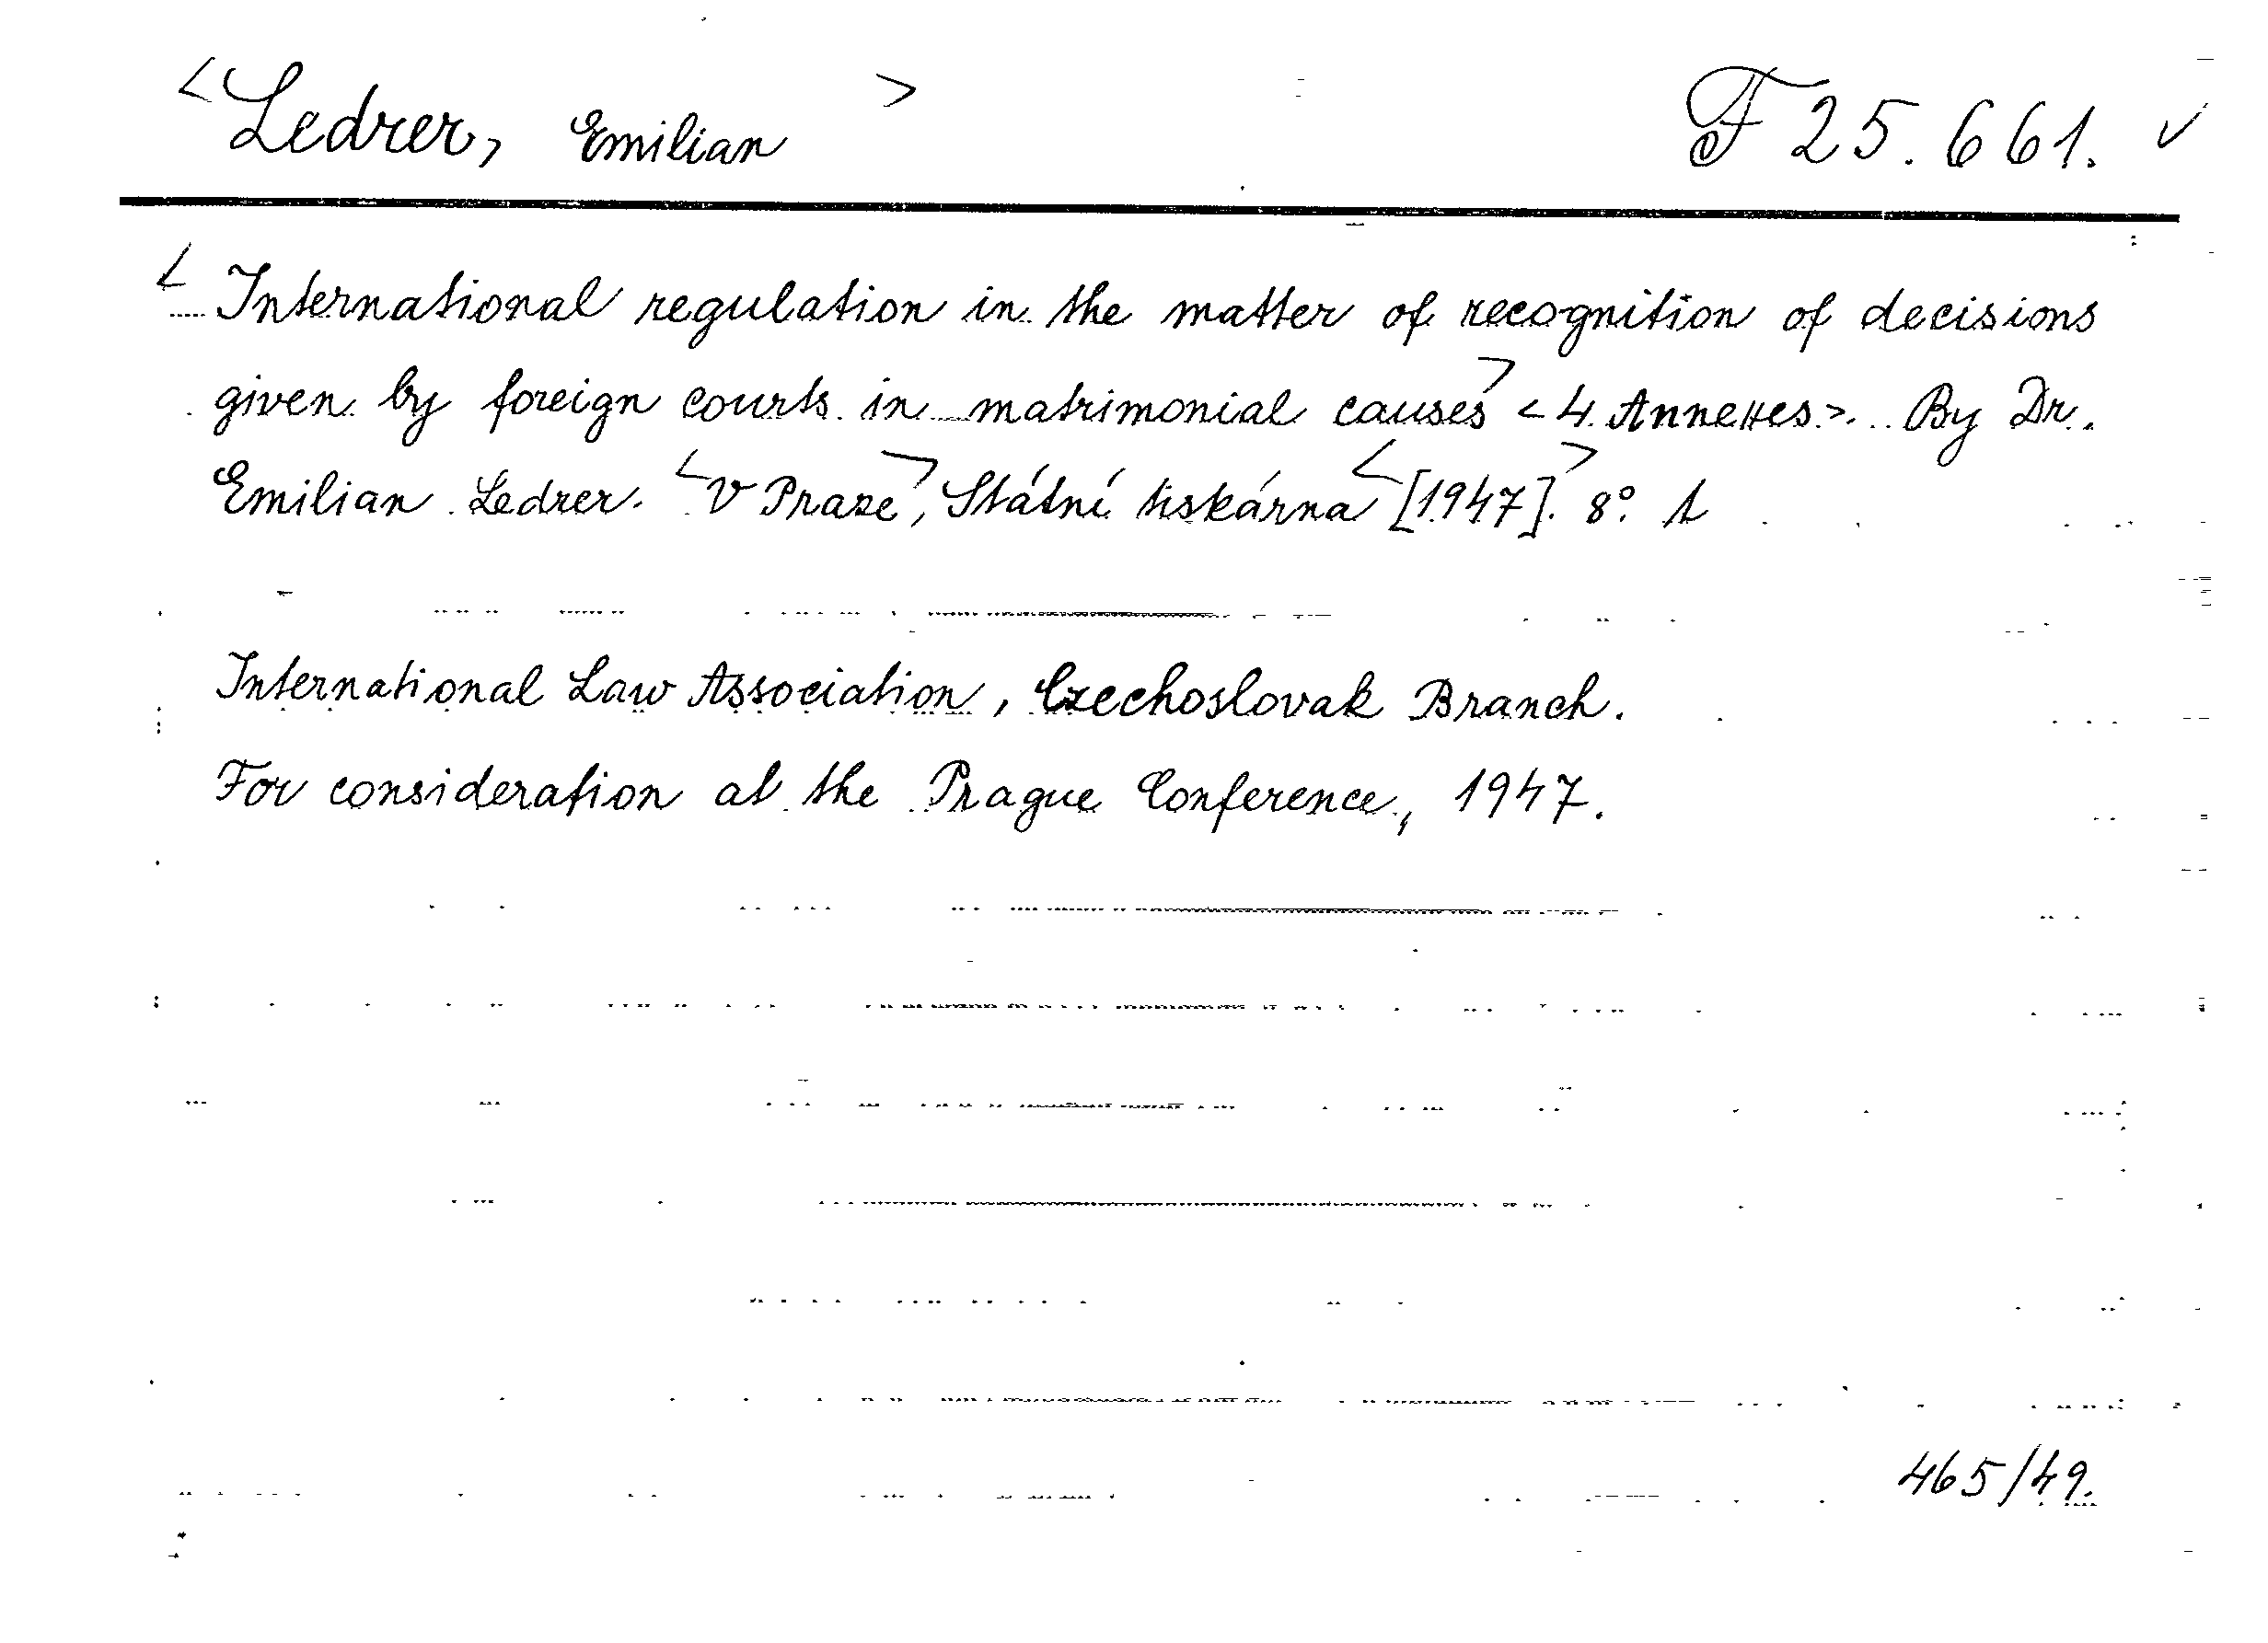 <Ledrer, Emilian> F 25.661. ✓
<International regulation in the matter of recognition of decisions
given by foreign courts in matrimonial causes> <4 Annexes>. By Dr.
Emilian Ledrer. <V Praze>, Státní tiskárna <[1947].> 8° 1
International Law Association, Czechoslovak Branch.
For consideration at the Prague Conference, 1947.
465/49.